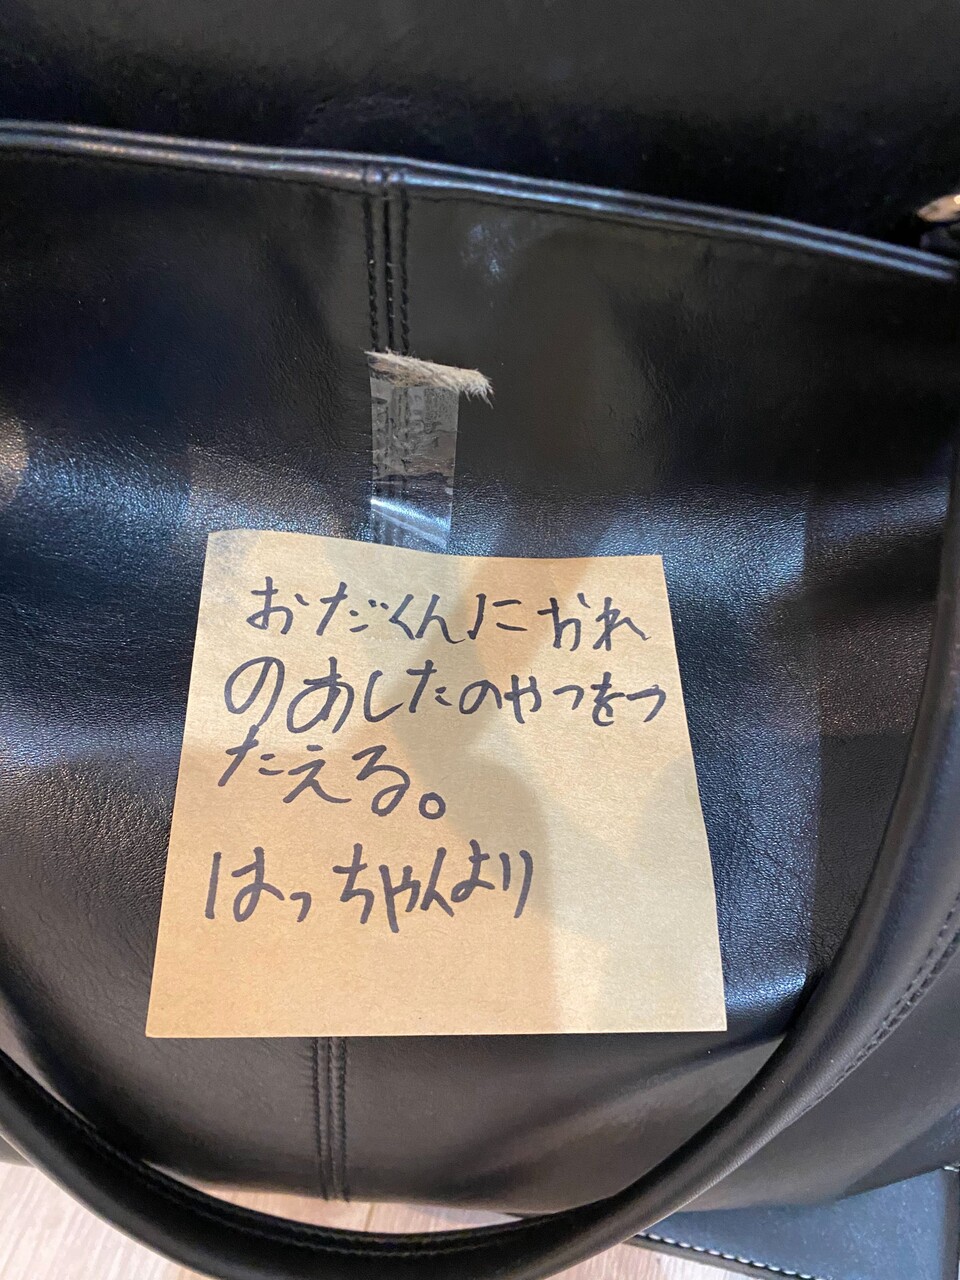 おだくんにおれ
のあしたのやつをつ
たえる。
はっちゃんより